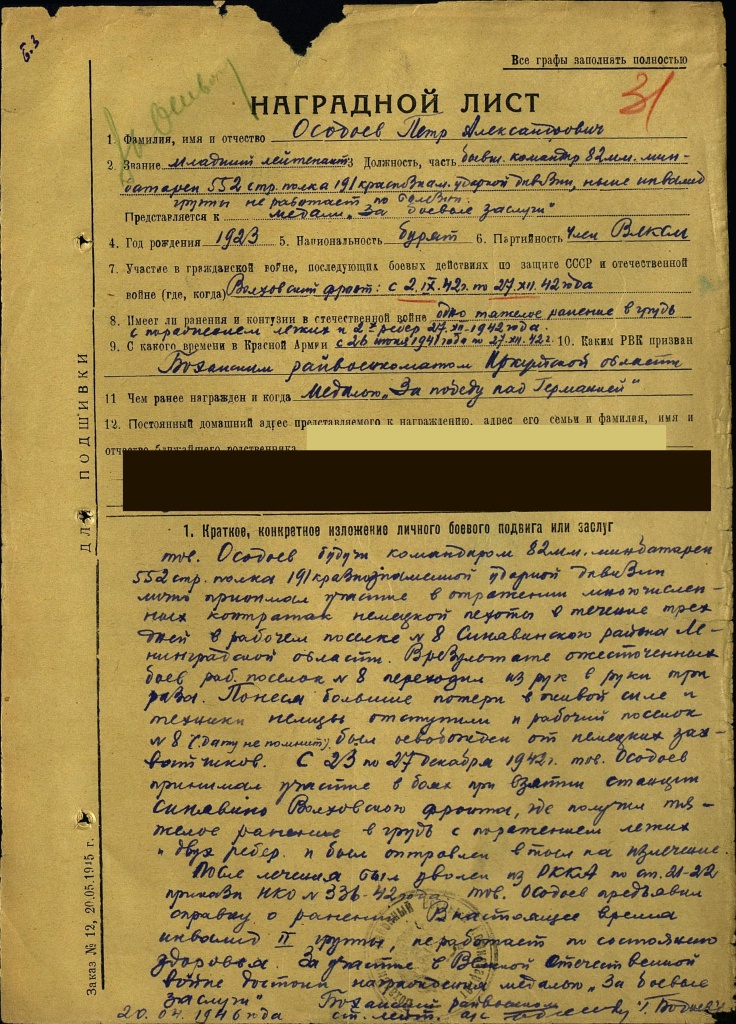 Б.3
Все графы заполнять полностью
НАГРАДНОЙ ЛИСТ
31
1. Фамилия, имя и отчество Осодоев Петр Александрович
2. Звание младший лейтенант 3 Должность, часть бывш. командир 82мм. мин-
батареи 552 стр. полка 191 краснознам. ударной дивизии, ныне инвалид
группы не работает по болезни.
Представляется к медали "За боевые заслуги"
4. Год рождения 1923 5. Национальность бурят 6. Партийность член ВЛКСМ
7. Участие в гражданской войне, последующих боевых действиях по защите СССР и отечественной
войне (где, когда) Волховский фронт: с 2.IX.42г. по 27.XII.42 года
8. Имеет ли ранения и контузии в отечественной войне одно тяжелое ранение в грудь
с поражением легких и 2х ребер 27.XII-1942 года.
9. С какого времени в Красной Армии с 26 июня 1941 года по 27.XII.42г. 10. Каким РВК призван
Боханским райвоенкоматом Иркутской области
11 Чем ранее награжден и когда Медалью "За победу над Германией"
12. Постоянный домашний адрес представляемого к награждению, адрес его семьи и фамилия, имя и
отчество ближайшего родственника
ДЛЯ ПОДШИВКИ
1. Краткое, конкретное изложение личного боевого подвига или заслуг
тов. Осодоев будучи командиром 82мм. минбатареи
552 стр. полка 191 краснознаменной ударной дивизии
принимал участие в отражении многочислен-
ных контратак немецкой пехоты в течение трех
дней в рабочем поселке №8 Синявинского района Ле-
нинградской области. В результате ожесточенных
боев раб. поселок №8 переходил из рук в руки три
раза. Понеся большие потери в живой силе и
техники немцы отступили и рабочий поселок
№8 (дату не помнит) был освобожден от немецких зах-
ватчиков. С 23 по 27 декабря 1942г. тов. Осодоев
принимал участие в боях при взятии станции
Синявино Волховского фронта, где получил тя-
желое ранение в грудь с поражением легких
и двух ребер. и был отправлен в тыл на излечение.
После лечения был уволен из РККА по ст. 21-22
приказа НКО №336-42 года. тов. Осодоев предъявил
справку о ранении. В настоящее время
инвалид II группы, не работает по состоянию
здоровья. За участие в Великой отечественной
войне достоин награждения медалью "За боевые
заслуги" Боханский райвоенком
20.04.1946 года ст. лейт. а/с
Заказ № 12, 20.05.1945 г.